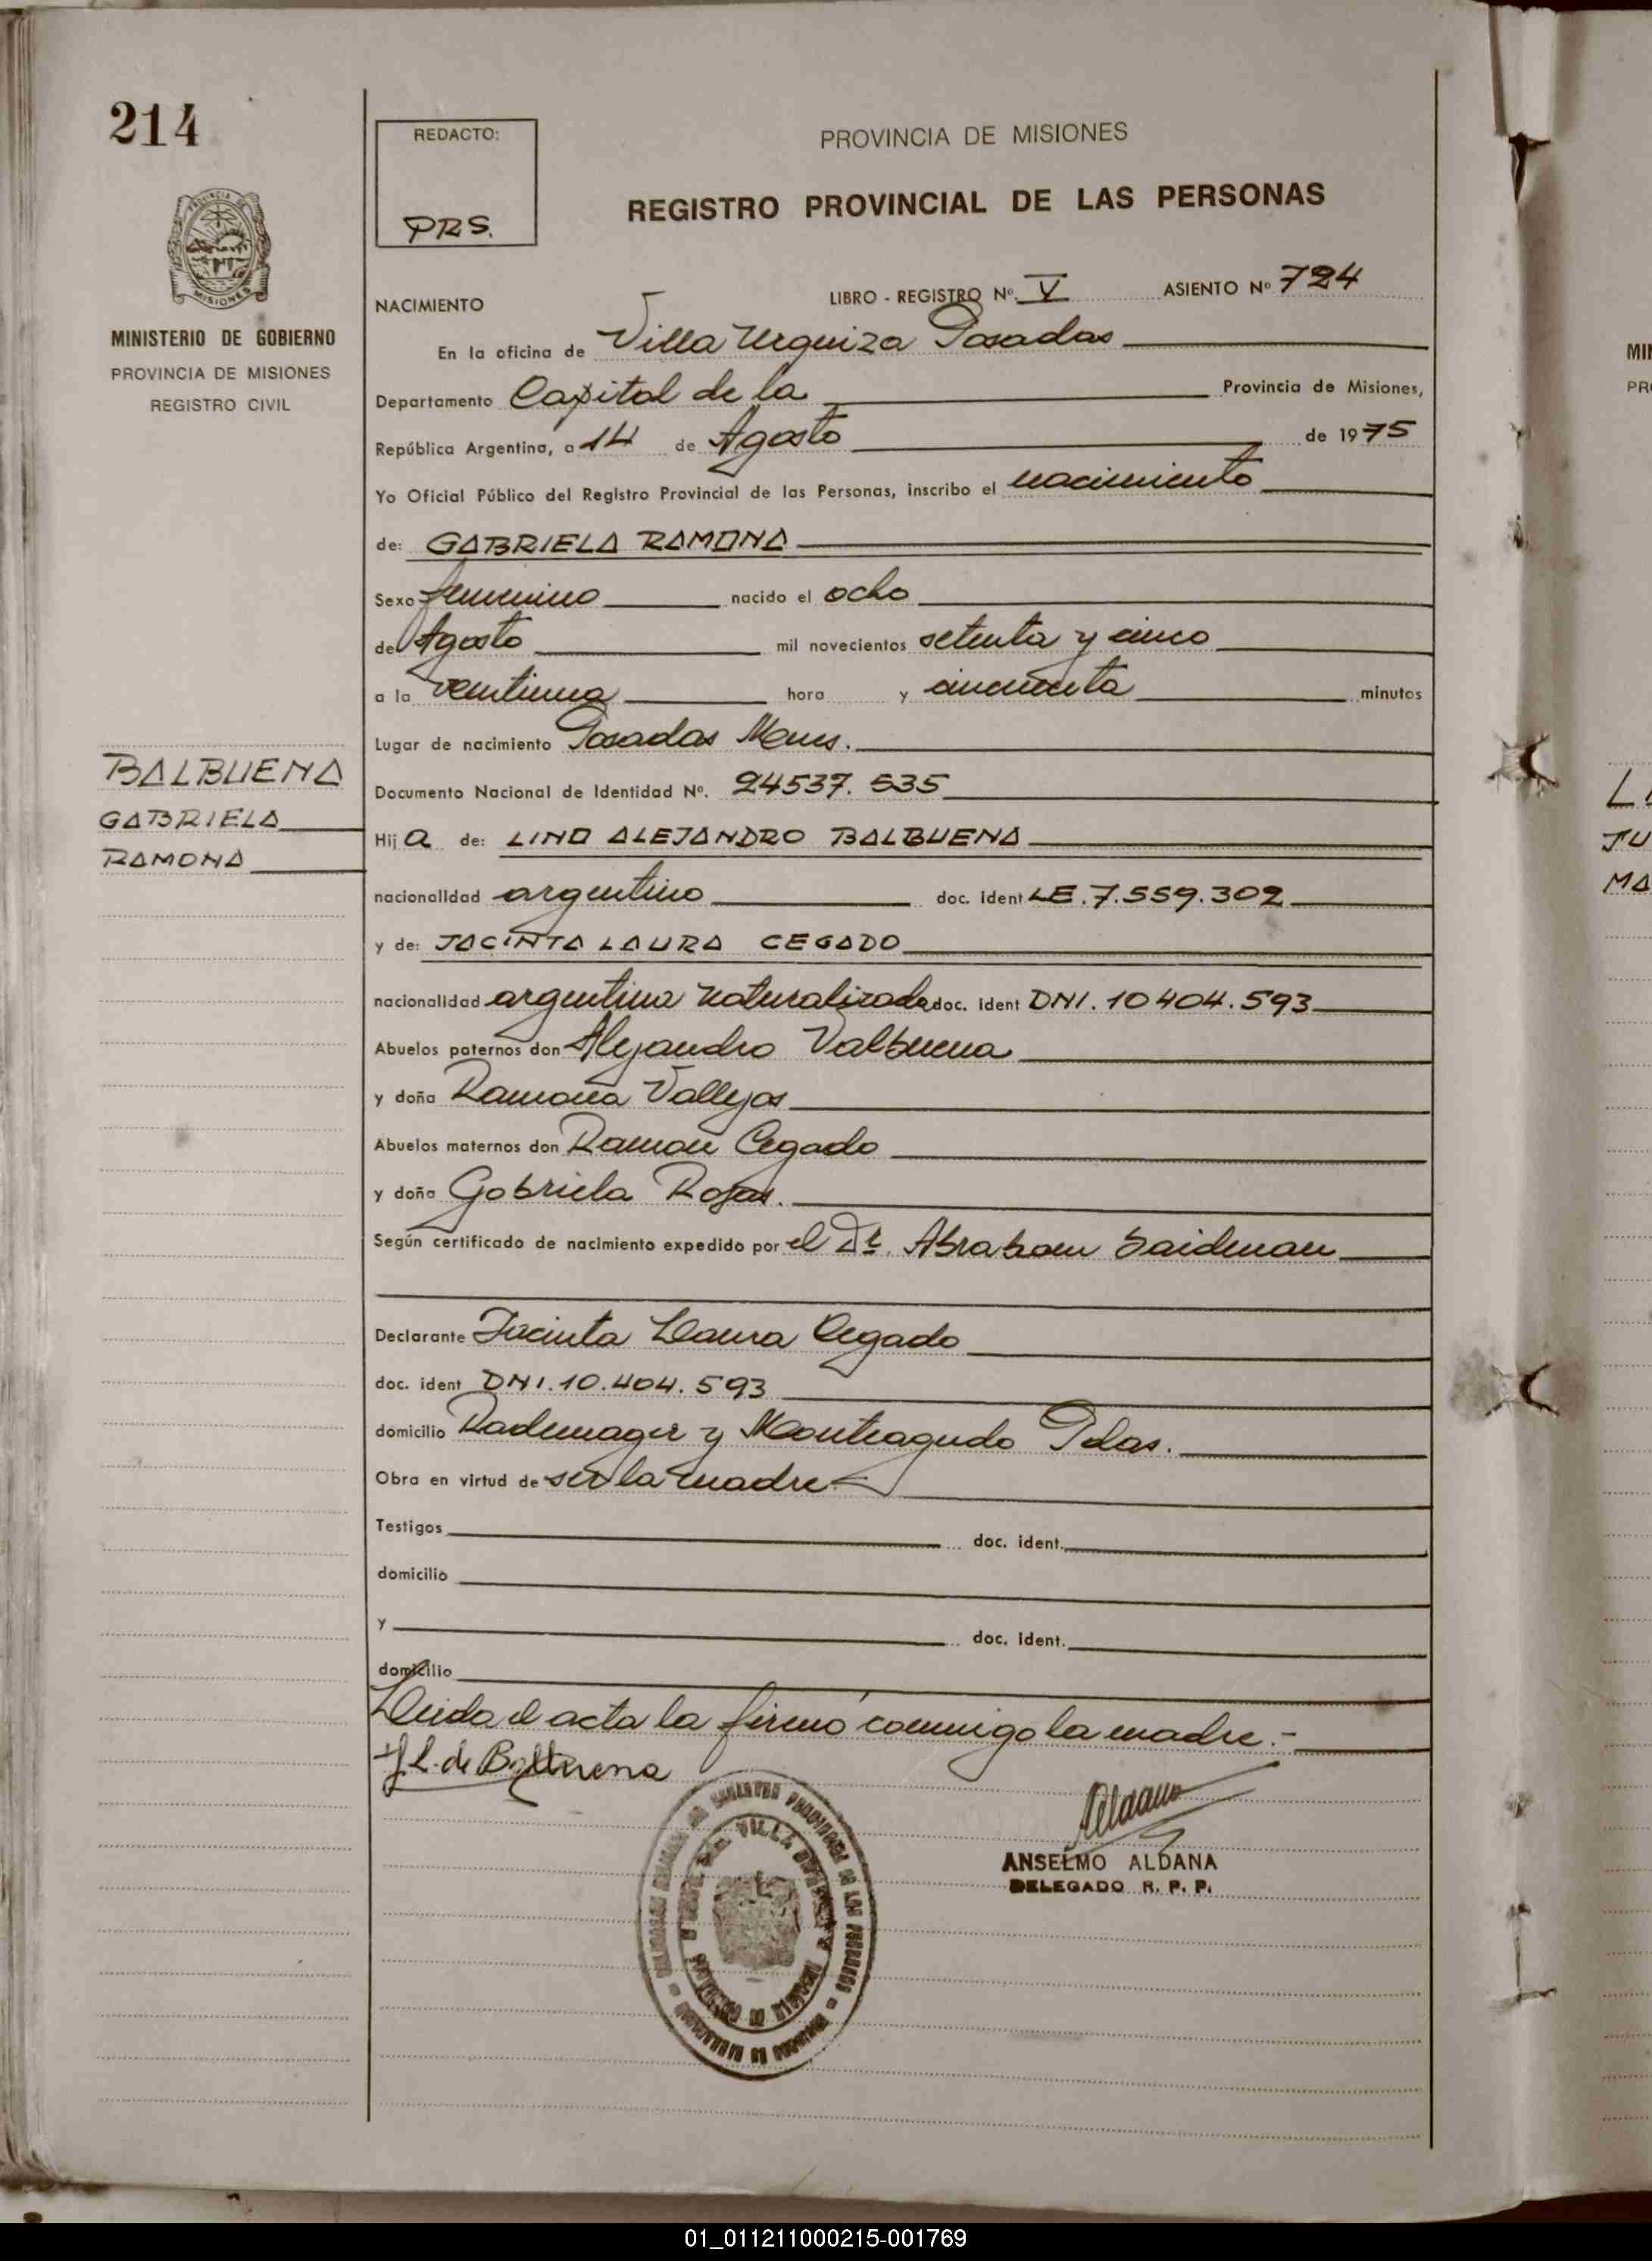 214
REDACTO:
PRS.
PROVINCIA DE MISIONES
REGISTRO PROVINCIAL DE LAS PERSONAS
MISIONES
MINISTERIO DE GOBIERNO
PROVINCIA DE MISIONES
REGISTRO CIVIL
NACIMIENTO
LIBRO - REGISTRO Nº. V ASIENTO Nº 724
En la oficina de Villa Urquiza Posadas
Departamento Capital de la Provincia de Misiones,
República Argentina, a 14 de Agosto de 1975
Yo Oficial Público del Registro Provincial de las Personas, inscribo el nacimiento
de: GABRIELA RAMONA
Sexo femenino nacido el ocho
de Agosto mil novecientos setenta y cinco
a la veintiuna hora y cincuenta minutos
Lugar de nacimiento Posadas Mnes.
BALBUENA
GABRIELA
RAMONA
Documento Nacional de Identidad Nº. 24537.535
Hij a de: LINO ALEJANDRO BALBUENA
nacionalidad argentino doc. ident LE.7.559.302
y de: JACINTA LAURA CEGADO
nacionalidad argentina naturalizada doc. ident DNI. 10404.593
Abuelos paternos don Alejandro Valbuena
y doña Ramona Vallejos
Abuelos maternos don Ramon Cegado
y doña Gabriela Rojas.
Según certificado de nacimiento expedido por el Dr. Abraham Saidman
Declarante Jacinta Laura Cegado
doc. ident DNI.10.404.593
domicilio Rademager y Monteagudo Pdas.
Obra en virtud de ser la madre
Testigos doc. ident.
domicilio
y doc. ident.
domicilio
Leida el acta la firmó conmigo la madre.-
J L. de Balbuena
ANSELMO ALDANA
DELEGADO R. P. P.
VILLA
MI
PR
L
JU
MA
01_011211000215-001769